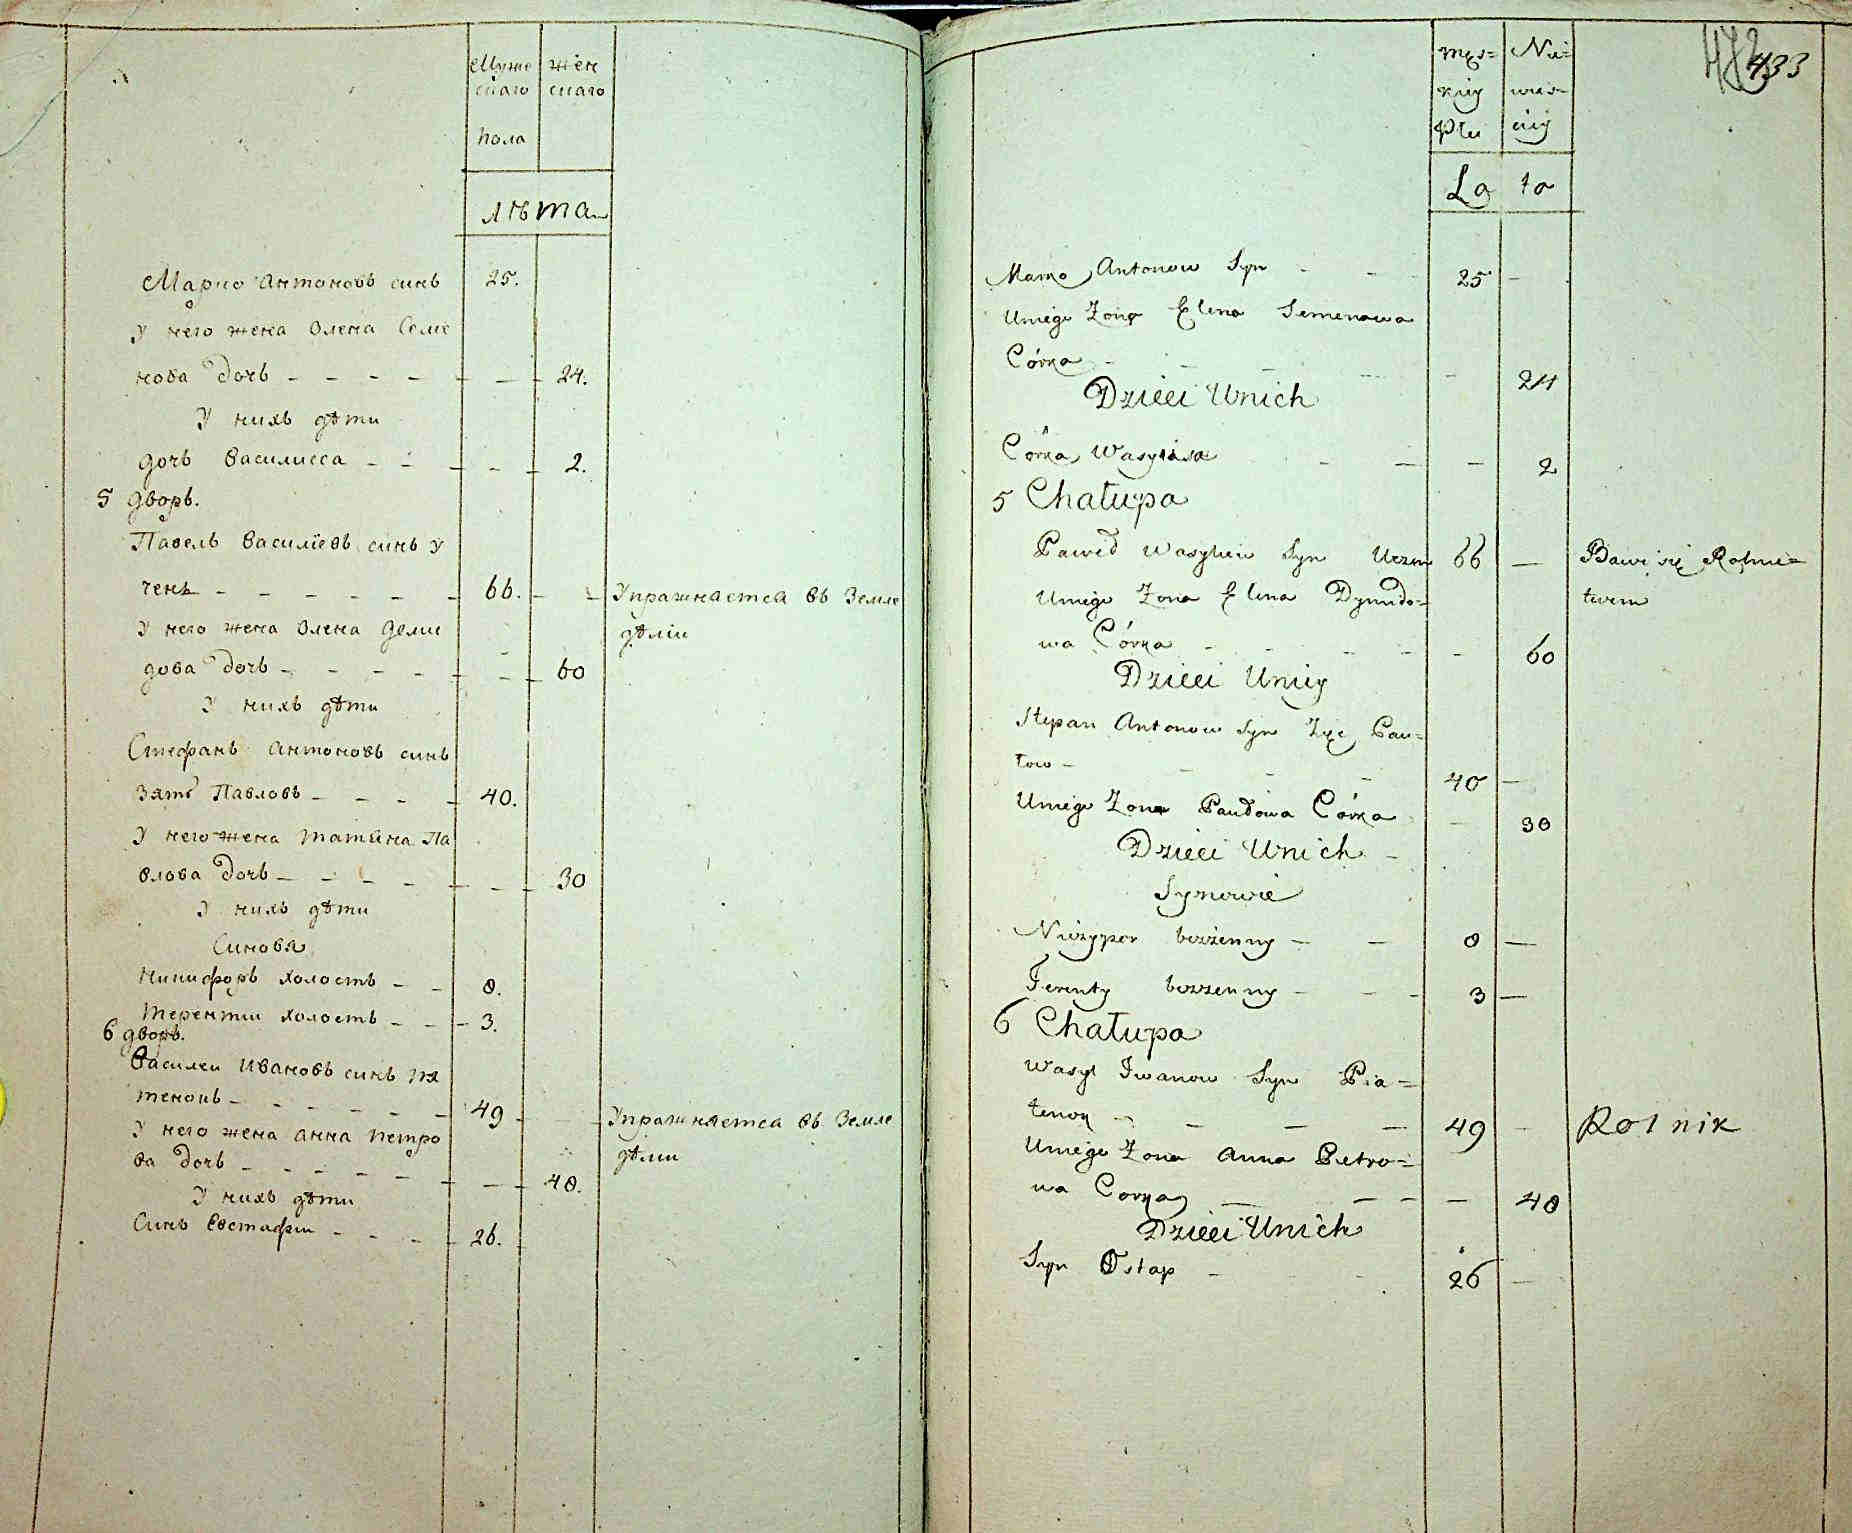 Муже жен
скаго скаго
пола
лѣта
Марко Антоновъ синъ 25.
У него жена Олена Семе
нова дочь - - - - - - - 24.
У нихъ дѣти
дочь Василисса - - - - - 2.
5 дворъ.
Павелъ Василіевъ синъ У
ченъ - - - - - - 66. - - Упражнается въ Земле
У него жена Олена Деми дѣліи
дова дочь - - - - - - - 60
У нихъ дѣти
Стефанъ Антоновъ синъ
Зять Павловъ - - - - 40.
У него жена Татияна Па
влова дочь - - - - - - - 30
У нихъ дѣти
Синовя
Никифоръ холостъ - - 8.
Терентии холостъ - - - 3.
6 дворъ.
Василеи Ивановъ синъ Пя
тенокъ - - - - - - 49 - - Упражняется въ Земле
У него жена Анна Петро дѣліи
ва дочь - - - - - - - - 48.
У нихъ дѣти
Синъ Евстафіи - - - - 26.
433
męs= Nie=
kiey wies=
Płci ciey
La ta
Marko Antonow Syn - - - 25 -
Uniego Żona Elena Semenowa
Córka - - - - - 24
Dzieci Unich
Córka Wasylisa - - - 2
5 Chałupa
Paweł Wasyliew Syn Uczen 66 - Bawi się Rolnic=
Uniego Żona Elena Dymido= twem
wa Córka - - - - - - 60
Dzieci Uniey
Stepan Antonow Syn Zięć Paw=
łow - - - - 40 -
Uniego Żona Pawłowa Córka - 30
Dzieci Unich -
Synowie
Niczypor bezżenny - - 8 -
Terenty bezżenny - - - 3 -
6 Chałupa
Wasyl Iwanow Syn Pia=
tenok - - - - 49 - Rolnik
Uniego Żona Anna Pietro=
wa Corka - - - - 48
Dzieci Unich
Syn Ostap - - - 26 -